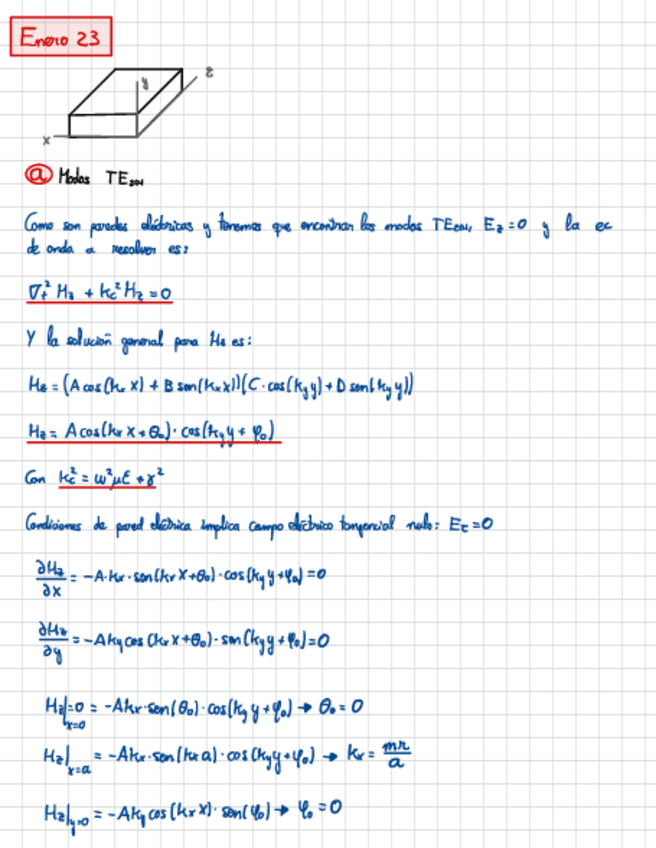 Enero 23
y
z
x
ⓐ Modos TE
Como son paredes eléctricas y tenemos que encontrar los modos TE, E_z=0 y la ec
de onda a resolver es:
∇_t² H_z + k_c² H_z = 0
Y la solución general para H_z es:
H_z = (A cos(k_x x) + B sen(k_x x))(C·cos(k_y y) + D sen(k_y y))
H_z = A cos(k_x x + θ₀)·cos(k_y y + φ₀)
Con k_c² = ω²με + γ²
Condiciones de pared eléctrica implica campo eléctrico tangencial nulo: E_τ=0
∂H_z/∂x = -A·k_x·sen(k_x x+θ₀)·cos(k_y y+φ₀) = 0
∂H_z/∂y = -A k_y cos(k_x x+θ₀)·sen(k_y y+φ₀) = 0
H_z|_{x=0} = 0 = -A k_x·sen(θ₀)·cos(k_y y+φ₀) → θ₀ = 0
H_z|_{x=a} = -A k_x·sen(k_x a)·cos(k_y y+φ₀) → k_x = mπ/a
H_z|_{y=0} = -A k_y cos(k_x x)·sen(φ₀) → φ₀ = 0